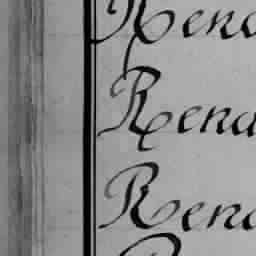 Rena
Rena
Rena